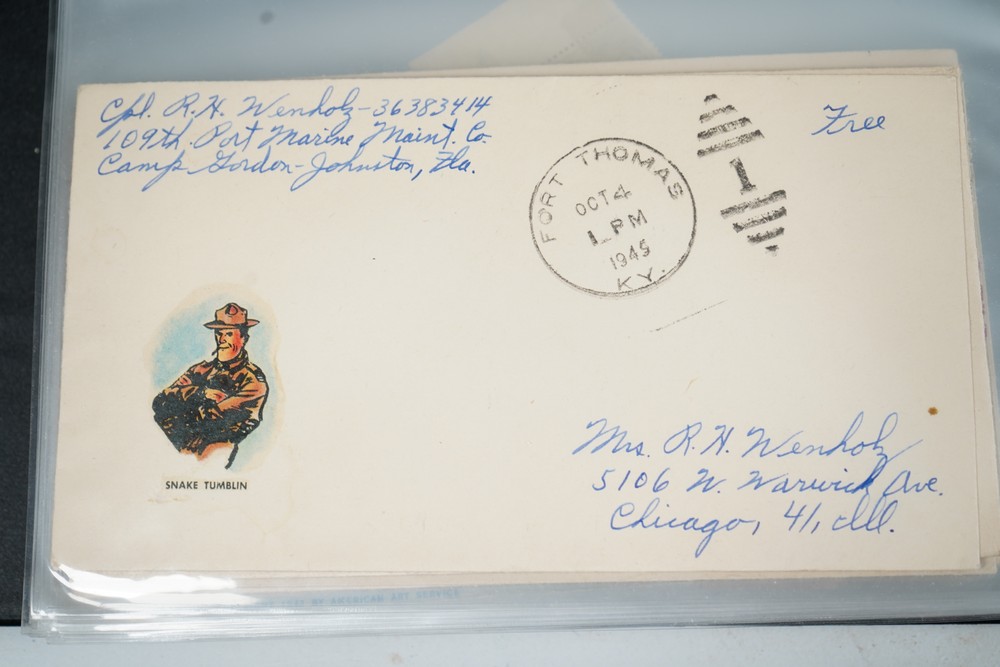 Cpl. R.H. Wenholz-36383414
109th. Port Marine Maint. Co.
Camp Gordon-Johnston, Fla.
Free
FORT THOMAS
OCT 4
1 PM
1945
KY.
1
SNAKE TUMBLIN
Mrs. R.H. Wenholz
5106 W. Warwick Ave.
Chicago, 41, Ill.
BY AMERICAN ART SERVICE